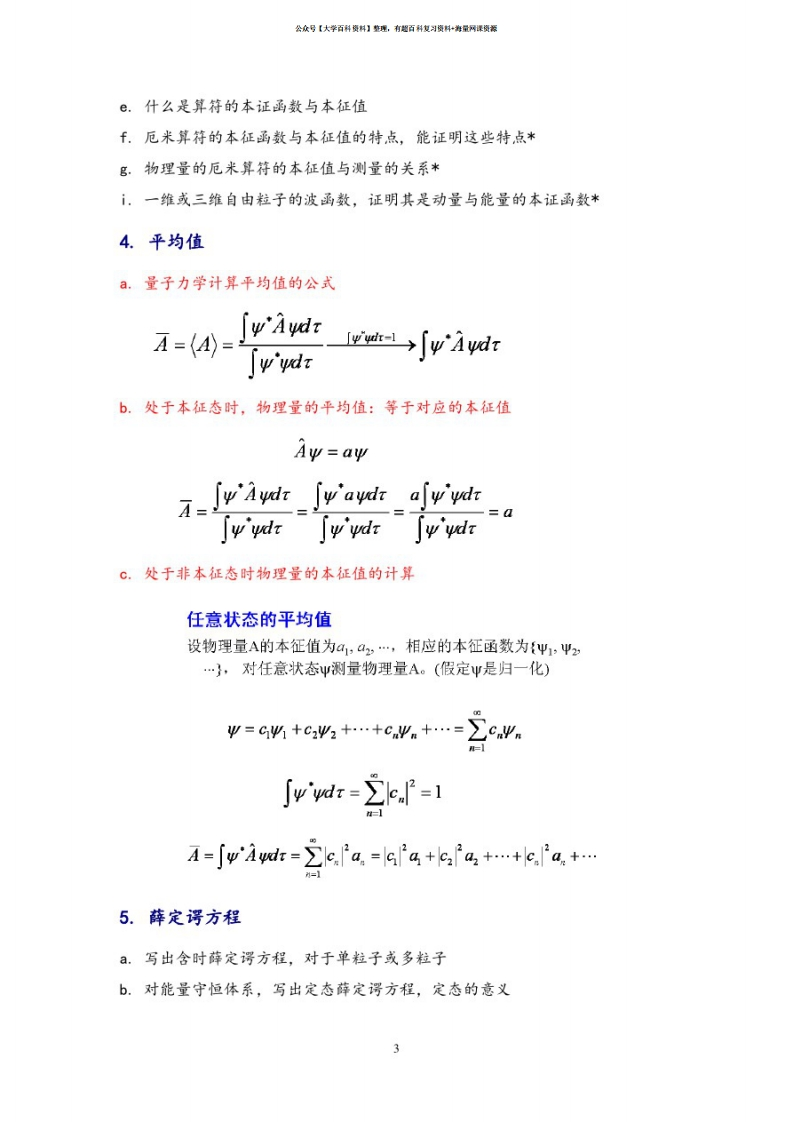 公众号【大学百科资料】整理，有超百科复习资料+海量网课资源
e. 什么是算符的本证函数与本征值
f. 厄米算符的本征函数与本征值的特点，能证明这些特点*
g. 物理量的厄米算符的本征值与测量的关系*
i. 一维或三维自由粒子的波函数，证明其是动量与能量的本证函数*
4. 平均值
a. 量子力学计算平均值的公式
A̅ = ⟨A⟩ = ∫ψ*Âψdτ / ∫ψ*ψdτ ∫ψ*ψdτ=1 → ∫ψ*Âψdτ
b. 处于本征态时，物理量的平均值：等于对应的本征值
Âψ = aψ
A̅ = ∫ψ*Âψdτ / ∫ψ*ψdτ = ∫ψ*aψdτ / ∫ψ*ψdτ = a∫ψ*ψdτ / ∫ψ*ψdτ = a
c. 处于非本征态时物理量的本征值的计算
任意状态的平均值
设物理量A的本征值为a₁, a₂, ···，相应的本征函数为{ψ₁, ψ₂,
···}，对任意状态ψ测量物理量A。(假定ψ是归一化)
ψ = c₁ψ₁ + c₂ψ₂ + ··· + cₙψₙ + ··· = ∑ₙ₌₁^∞ cₙψₙ
∫ψ*ψdτ = ∑ₙ₌₁^∞ |cₙ|² = 1
A̅ = ∫ψ*Âψdτ = ∑ₙ₌₁^∞ |cₙ|² aₙ = |c₁|² a₁ + |c₂|² a₂ + ··· + |cₙ|² aₙ + ···
5. 薛定谔方程
a. 写出含时薛定谔方程，对于单粒子或多粒子
b. 对能量守恒体系，写出定态薛定谔方程，定态的意义
3